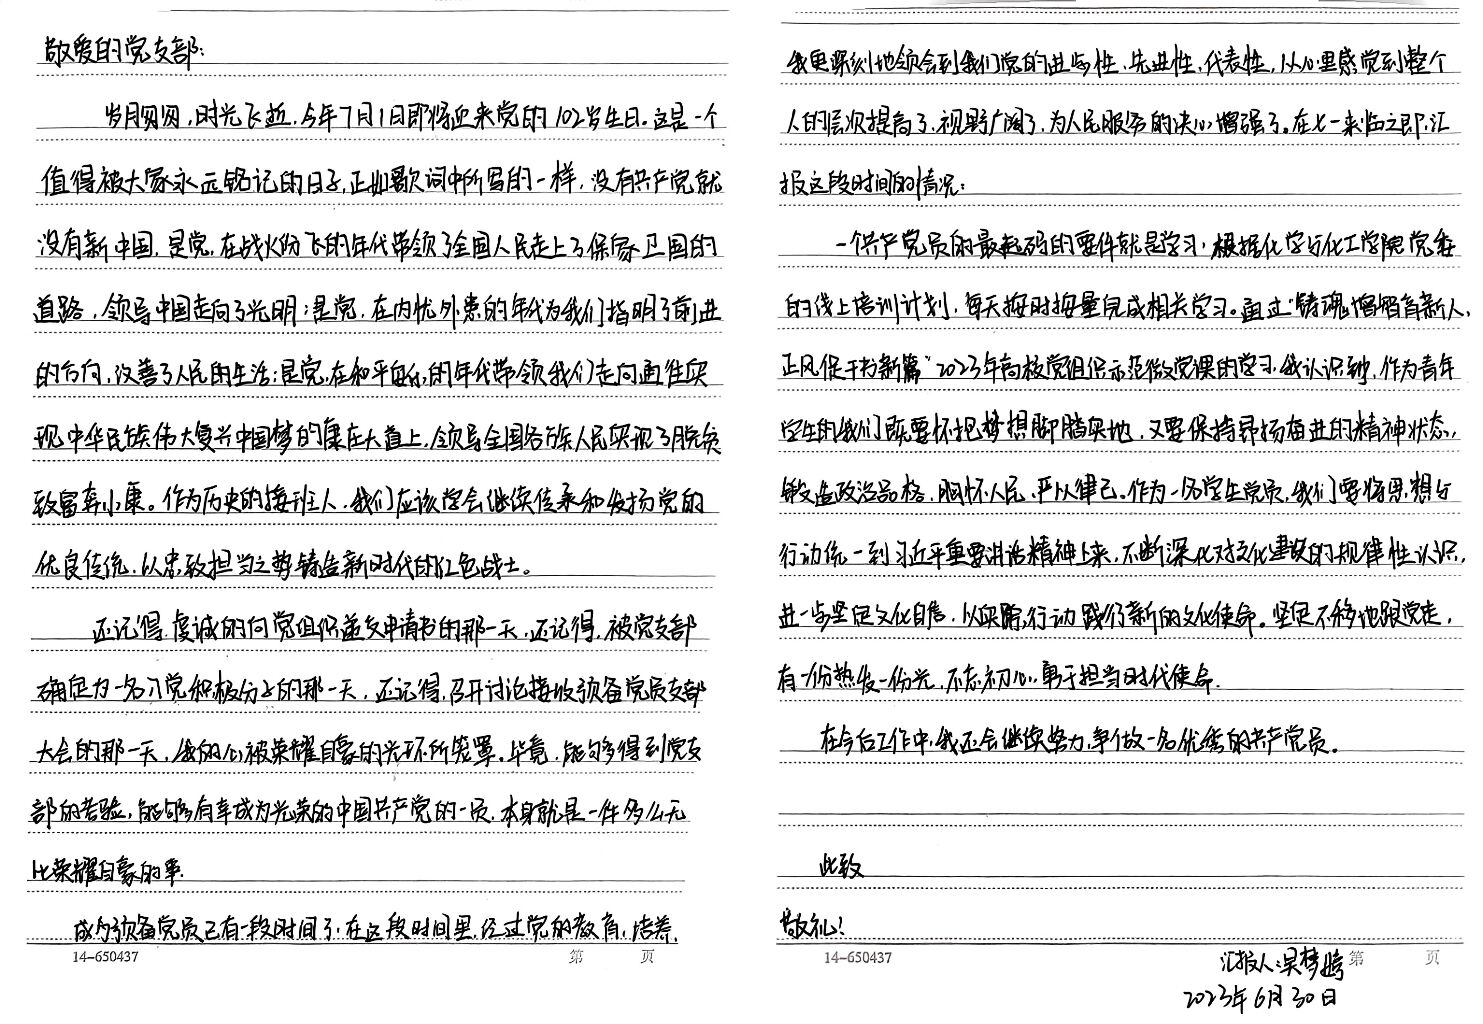 敬爱的党支部:
岁月匆匆,时光飞逝,今年7月1日即将迎来党的102岁生日。这是一个
值得被大家永远铭记的日子,正如歌词中所写的一样,没有共产党就
没有新中国,是党,在战火纷飞的年代带领了全国人民走上了保家卫国的
道路,领导中国走向了光明;是党,在内忧外患的年代为我们指明了前进
的方向,改善了人民的生活;是党,在和平的年代带领我们走向通往实
现中华民族伟大复兴中国梦的康庄大道上,领导全国各族人民实现了脱贫
致富奔小康。作为历史的接班人,我们应该学会继续传承和发扬党的
优良传统,以忠致担当之势铸造新时代的红色战士。
还记得,虔诚的向党组织递交申请书的那一天,还记得,被党支部
确定为一名入党积极分子的那一天,还记得,召开讨论接收预备党员支部
大会的那一天,我的心被荣耀自豪的光环所笼罩。毕竟,能够得到党支
部的考验,能够有幸成为光荣的中国共产党的一员,本身就是一件多么无
比荣耀自豪的事.
成为预备党员已有一段时间了,在这段时间里,经过党的教育,培养,
我更深刻地领会到我们党的进步性,先进性,代表性,从心里感觉到整个
人的层次提高了,视野广阔了,为人民服务的决心增强了。在七一来临之即,汇
报这段时间的情况:
一个共产党员的最起码的要件就是学习,根据化学与化工学院党委
的线上培训计划,每天按时按量完成相关学习。通过"铸魂增智育新人,
正风促干书新篇"2023年高校党组织示范微党课的学习,我认识到,作为青年
学生的我们既要怀把梦想脚踏实地,又要保持昂扬奋进的精神状态,
锻造政治品格,胸怀人民,严以律己。作为一名学生党员,我们要将思想与
行动统一到习近平重要讲话精神上来,不断深化对文化建设的规律性认识,
进一步坚定文化自信,以实际行动践行新的文化使命。坚定不移地跟党走,
有一份热发一份光,不忘初心,勇于担当时代使命.
在今后工作中,我还会继续努力,争做一名优秀的共产党员。
此致
敬礼!
14-650437 第 页
14-650437 第 页
汇报人:吴梦婷
2023年6月30日